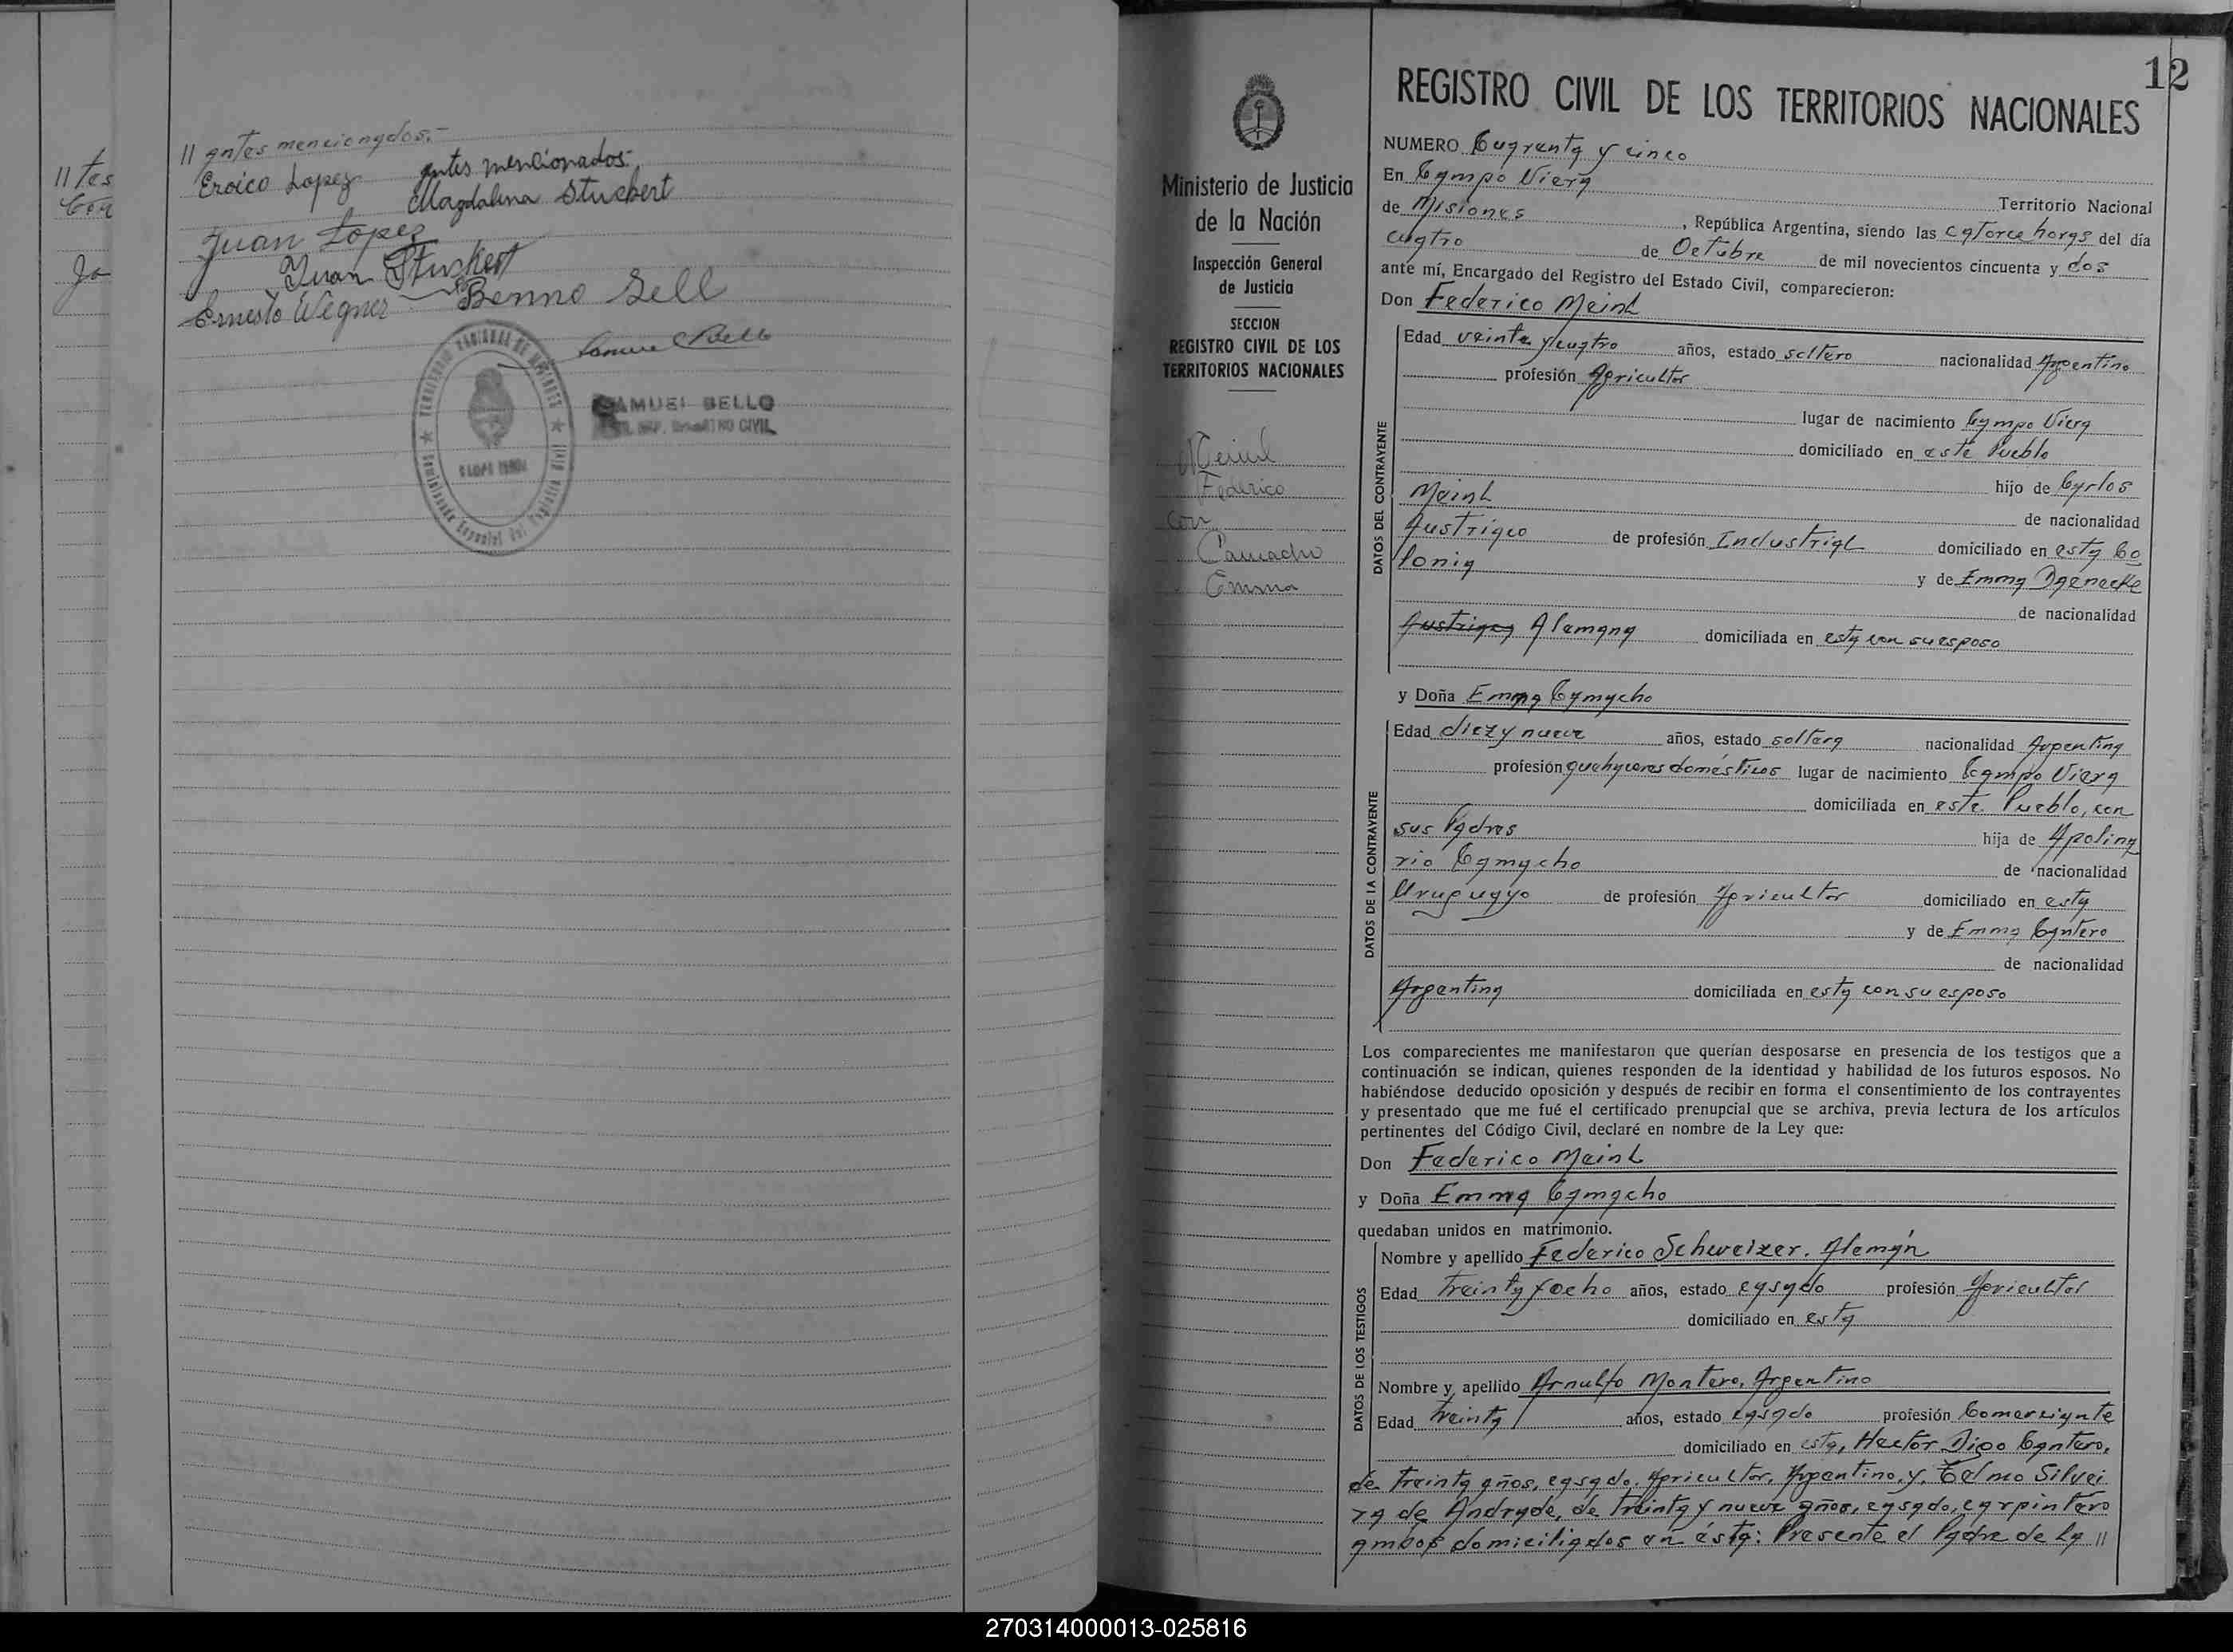 // tes
Con
Jo
// antes mencionados.-
Eroico Lopez
antes mencionados.-
Magdalena Stuckert
Juan Lopez
Juan Stuckert
Ernesto Wegner
Benno Sell
Samuel Bello
SAMUEL BELLO
REGISTRO CIVIL
12
Ministerio de Justicia
de la Nación
Inspección General
de Justicia
SECCION
REGISTRO CIVIL DE LOS
TERRITORIOS NACIONALES
Meinl
Federico
con
Camacho
Emma
REGISTRO CIVIL DE LOS TERRITORIOS NACIONALES
NUMERO Cuarenta y cinco
En Campo Viera
Territorio Nacional
de Misiones, República Argentina, siendo las catorce horas del día
cuatro de Octubre de mil novecientos cincuenta y dos
ante mí, Encargado del Registro del Estado Civil, comparecieron:
Don Federico Meinl
DATOS DEL CONTRAYENTE
Edad veinte y cuatro años, estado soltero nacionalidad Argentino
profesión Agricultor
lugar de nacimiento Campo Viera
domiciliado en este Pueblo
hijo de Carlos
Meinl de nacionalidad
Austriaco de profesión Industrial domiciliado en esta Co
lonia y de Emma Daenecke
de nacionalidad
Austriaca Alemana domiciliada en esta con su esposo
y Doña Emma Camacho
DATOS DE LA CONTRAYENTE
Edad diez y nueve años, estado soltera nacionalidad Argentina
profesión quehaceres domésticos lugar de nacimiento Campo Viera
domiciliada en este Pueblo, con
sus Padres hija de Apolina
rio Camacho de nacionalidad
Uruguayo de profesión Agricultor domiciliado en esta
y de Emma Cantero
de nacionalidad
Argentina domiciliada en esta con su esposo
Los comparecientes me manifestaron que querían desposarse en presencia de los testigos que a
continuación se indican, quienes responden de la identidad y habilidad de los futuros esposos. No
habiéndose deducido oposición y después de recibir en forma el consentimiento de los contrayentes
y presentado que me fué el certificado prenupcial que se archiva, previa lectura de los artículos
pertinentes del Código Civil, declaré en nombre de la Ley que:
Don Federico Meinl
y Doña Emma Camacho
quedaban unidos en matrimonio.
DATOS DE LOS TESTIGOS
Nombre y apellido Federico Schweizer. Alemán
Edad treinta y ocho años, estado casado profesión Agricultor
domiciliado en esta
Nombre y apellido Arnulfo Montero, Argentino
Edad treinta años, estado casado profesión Comerciante
domiciliado en esta, Hector Digo Cantero,
de treinta años, casado, Agricultor, Argentino, y Telmo Silvei
ra de Andrade, de treinta y nueve años, casado, carpintero
ambos domiciliados en ésta: Presente el Padre de la //
270314000013-025816